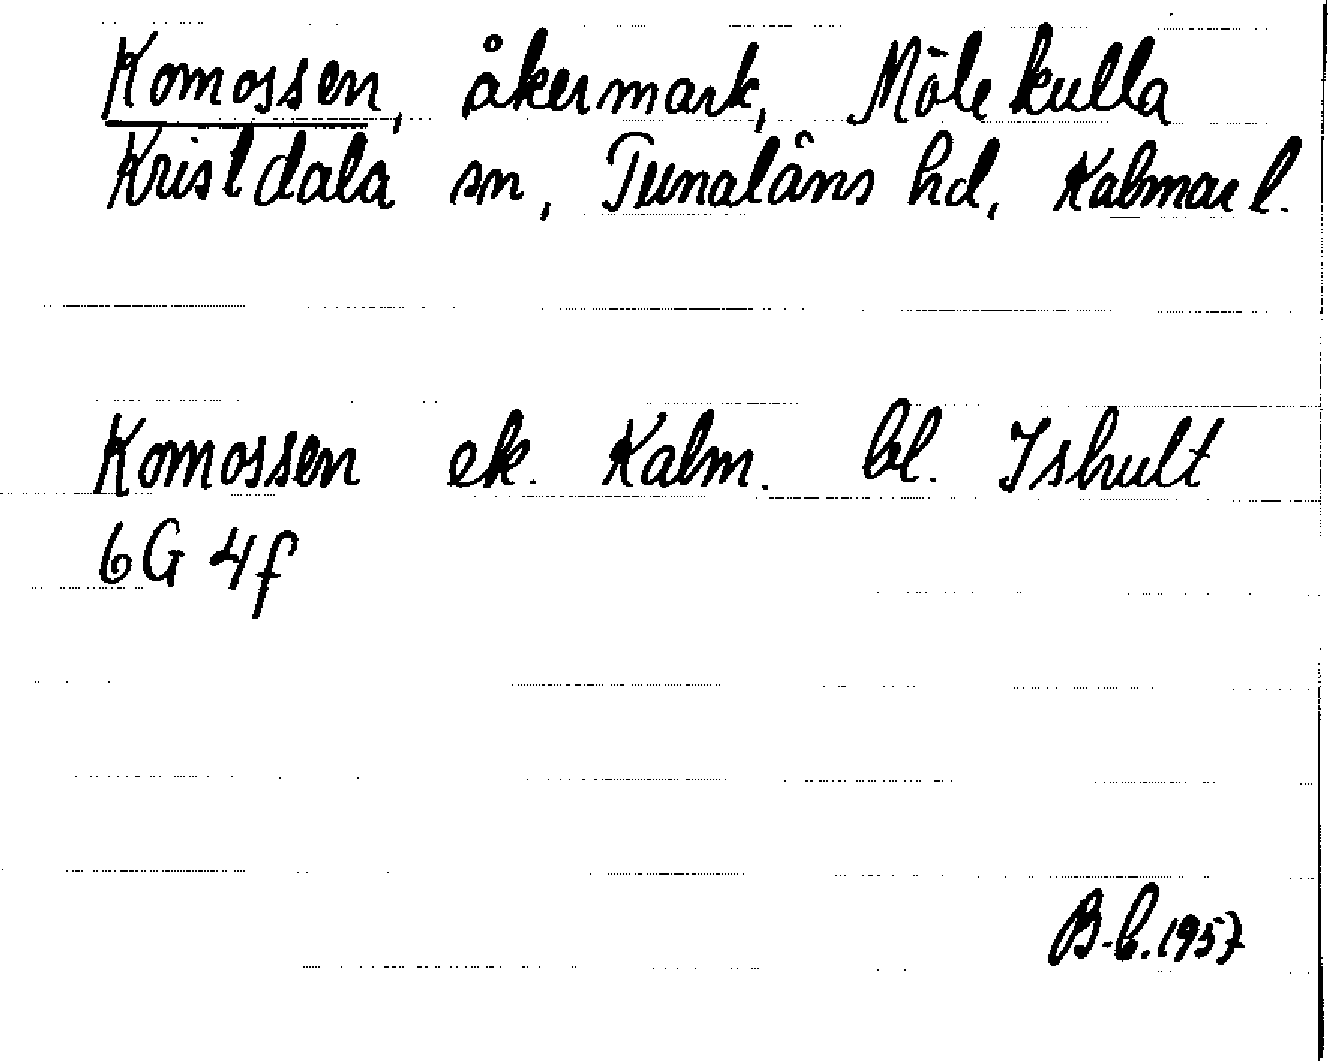 Komossen, åkermark, Mölekulla
Kristdala sn, Tunaläns hd, Kalmar l.
Komossen ek. Kalm. bl. Ishult
6G 4f
B-b.1957